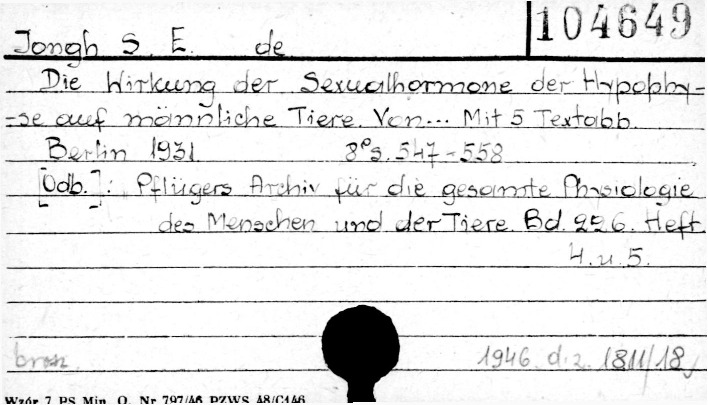 104649
Jongh S. E. de
Die Wirkung der Sexualhormone der Hypophy-
-se auf männliche Tiere. Von... Mit 5 Textabb.
Berlin 1931. 8º s. 547-558
[Odb.]: Pflügers Archiv für die gesamte Physiologie
des Menschen und der Tiere. Bd. 226. Heft
4. u. 5.
brosz. 1946. d. z. 1811/18
Wzór 7 PS Min. O. Nr 797/46 PZWS 48/C146